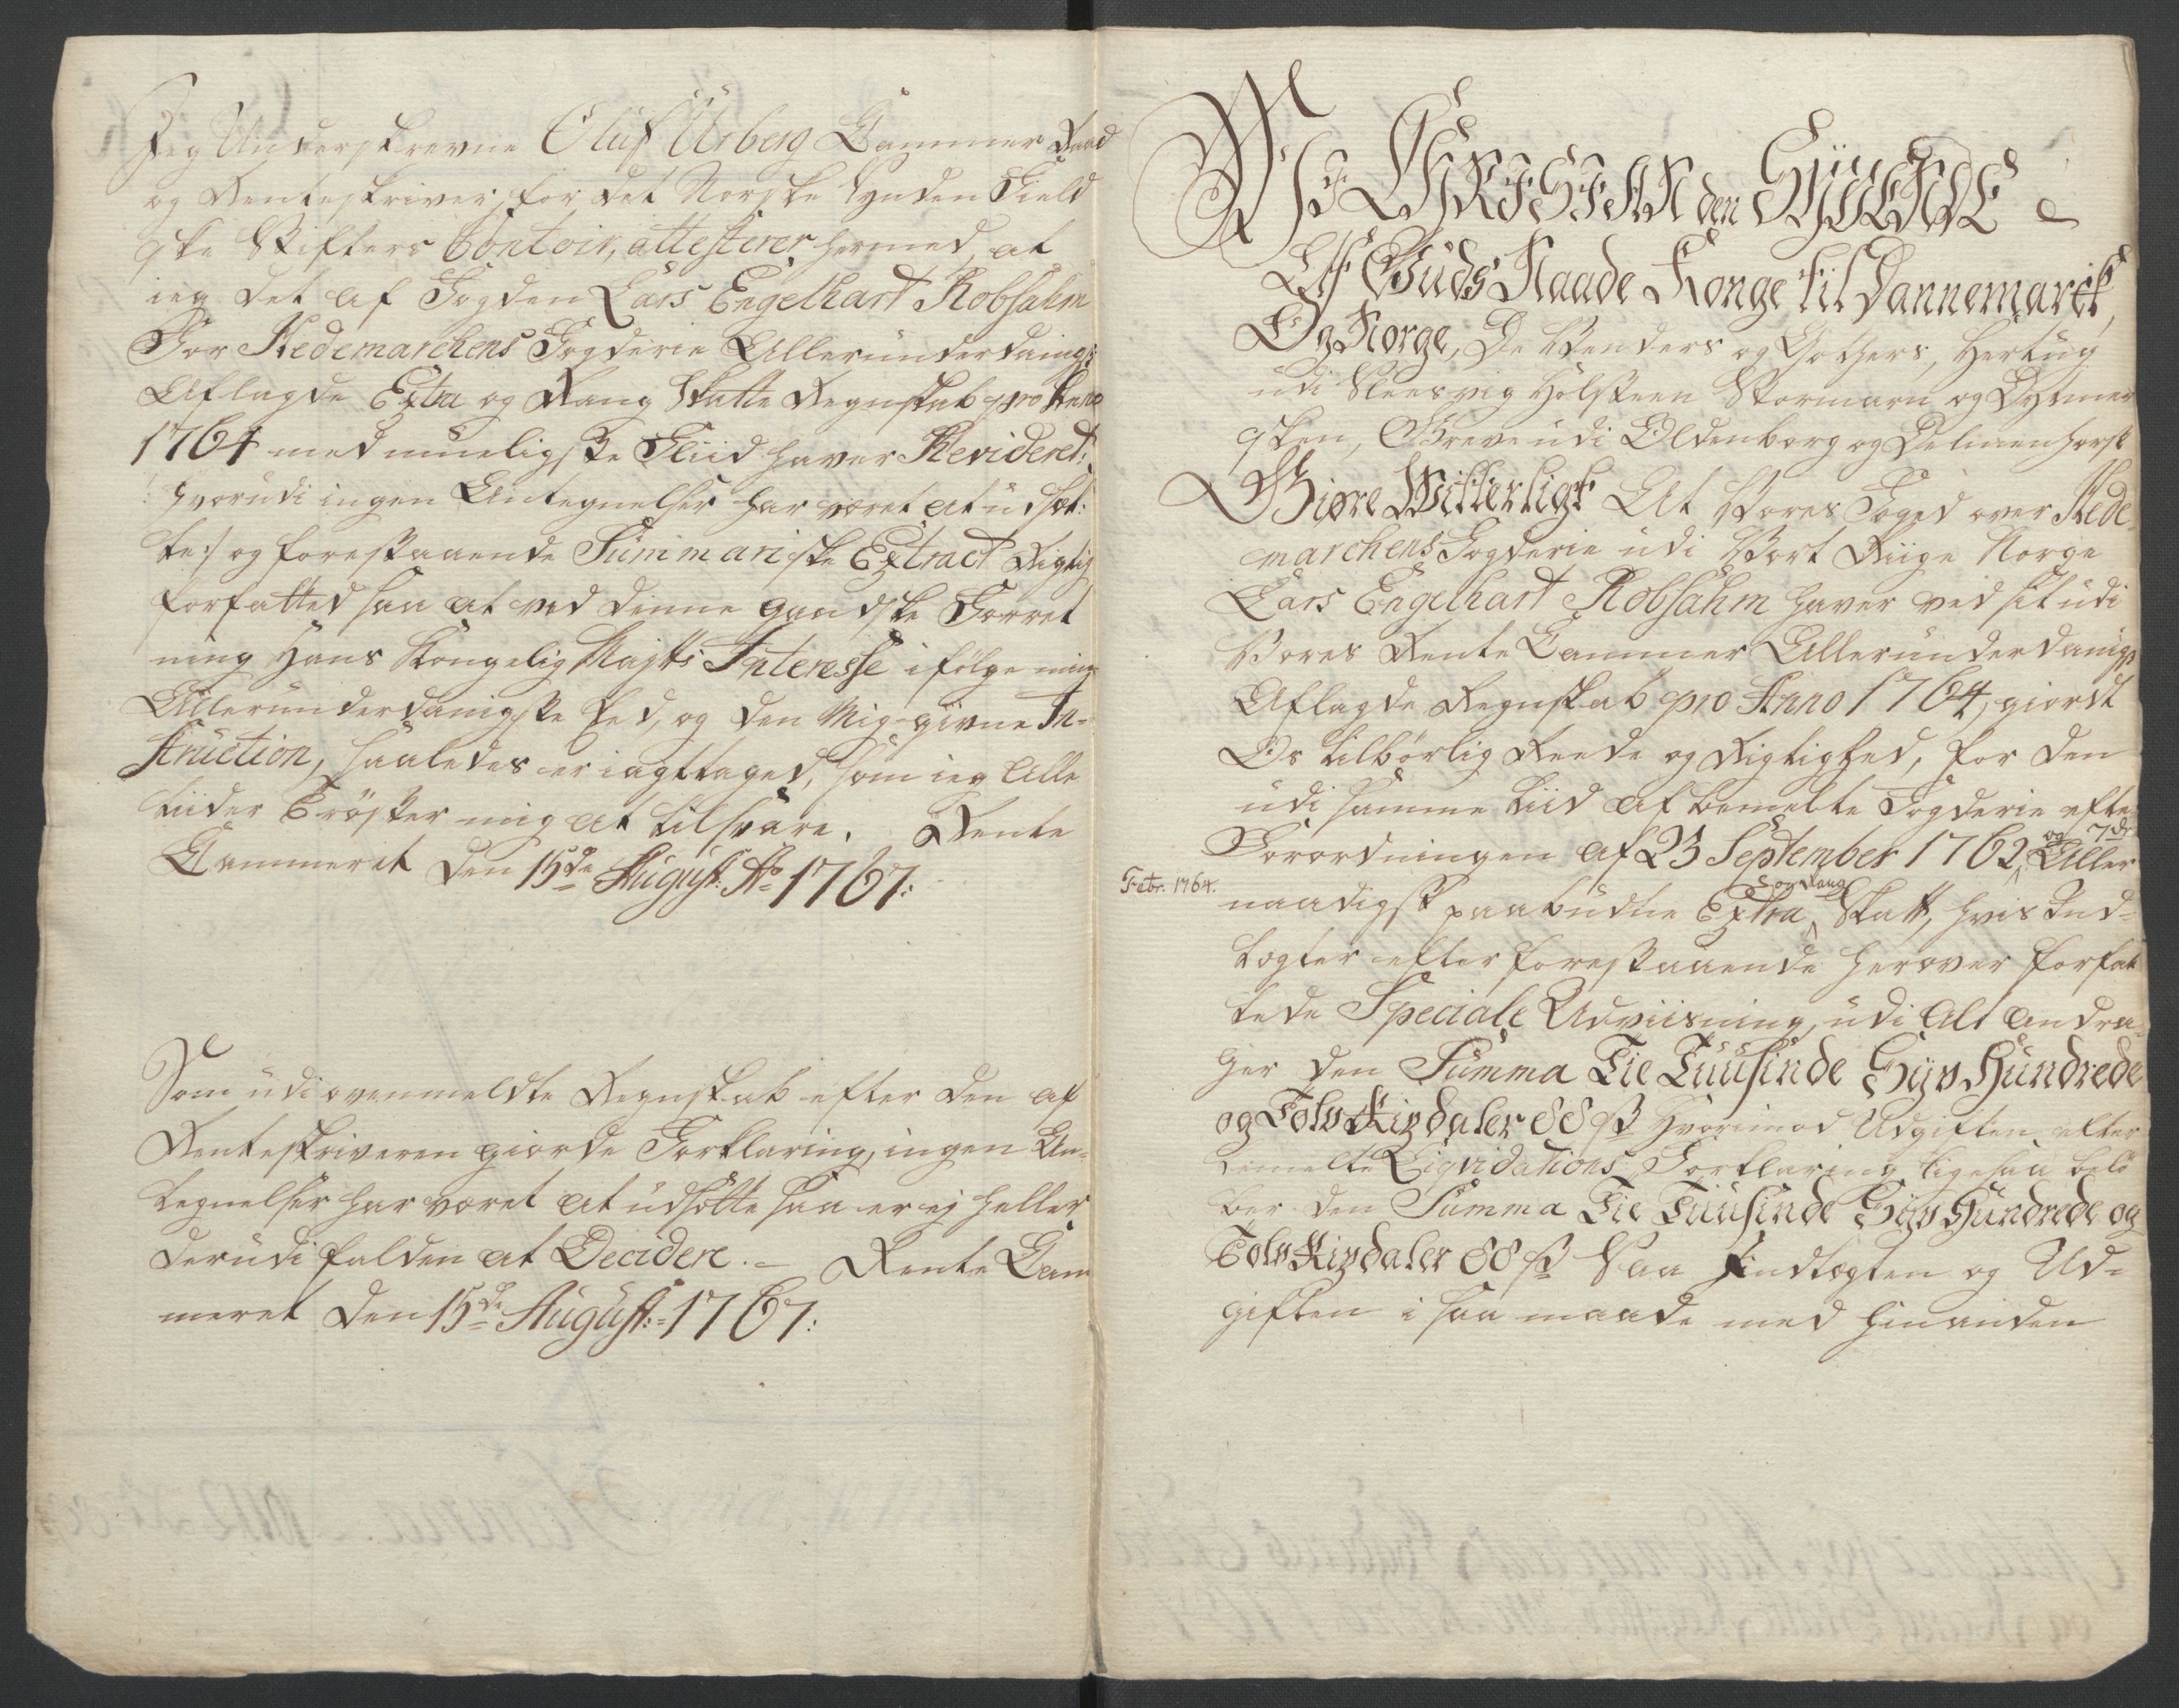 Jeg Underskrevne Oluf Urberg Cammer Raad
og Renteskriver, for det Norske Synden Field
ske Stifters Contoir, attesterer hermed, at
ieg det af Fogden Lars Engelhart Robsahm
For Hedemarchens Fogderie Allerunderdanigst
Aflagde Extra og Rang Skatte Regnskab pro Anno
1764 med mueligste Fliid haver Revideret:
/: hvorudi ingen Antegnelser har været at udsæt:
te:/ og forestaaende Summariske Extract Rigtig
forfatted saa at ved denne gandske Forret
ning Hans Kongelig Maj:ts Interesse i følge min
Allerunderdanigste Eed, og den Mig givne In-
struction, saaledes er iagttaged, som ieg Alle
tiider Trøster mig at tilsvare. Rente
Cammeret den 15de August: Ao 1767:
Som udi ovenmeldte Regnskab efter den af
Renteskriveren giorde Forklaring, ingen An-
tegnelser har været at udsætte saa er ej heller
derudi falden at Decidere. – Rente Cam
meret den 15de August:- 1767:
Wi CHRISTIAN den SYVENDE
Af Guds Naade Konge til Dannemarck,
Og Norge, De Wenders og Gothers, Hertug
udi Sleesvig Holsteen Stormarn og Dytmer
sken, Greve udi Oldenborg og Delmenhorst
Giøre Witterligt At Vores Foged over Hede
marchens Fogderie udi Vort Riige Norge
Lars Engelhart Robsahm haver ved sit udi
Vores Rente Cammer Allerunderdanigst
Aflagde Regnskab pro Anno 1764, giordt
Os tilbørlig Reede og Rigtighed, for den
udi samme tiid af bemelte Fogderie efter
og 7de
Forordningen af 23 September 1762, Aller
Febr. 1764.
og Rang
naadigst paabudne Extra Skatt, hvis Ind-
tægter efter forestaaende herover forfat
tede Speciale Udviisning, udi Alt andra-
ger den Summa Tie Tuusinde Syv Hundrede
og Tolv Rixdaler 88 ß Hvorimod Udgiften efter
bemelte Liqvidations Forklaring ligesaa belø
ber den Summa Tie Tuusinde Syv Hundrede og
Tolv Rixdaler 88 ß Saa Indtægten og Ud-
giften i saa maade med hinanden